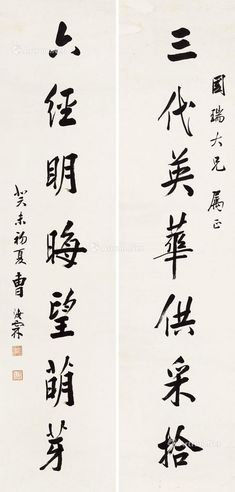 國瑞大兄 屬正
三代英華供采拾
六經明晦望萌芽
癸未初夏曹汝霖